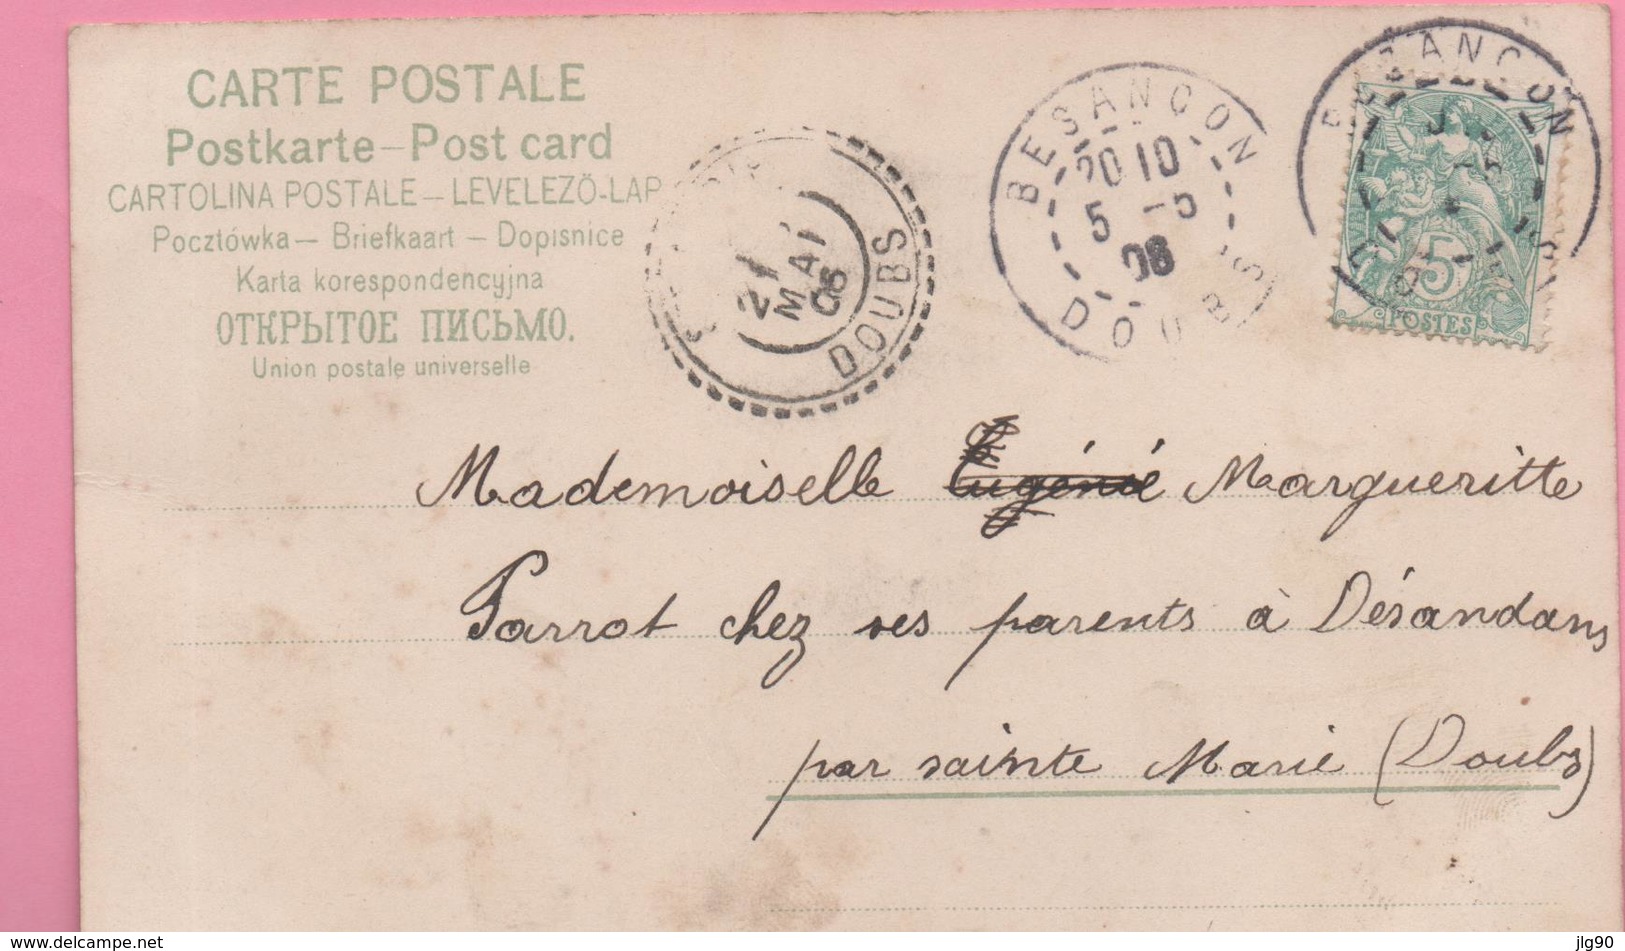 CARTE POSTALE
Postkarte–Post card
CARTOLINA POSTALE – LEVELEZŐ-LAP
Pocztówka – Briefkaart – Dopisnice
Karta korespondencyjna
ОТКРЫТОЕ ПИСЬМО.
Union postale universelle
MAI
06
DOUBS
BESANCON
20 10
5 -5
06
DOUBS
BESANCON
5
POSTES
Mademoiselle Eugénie Margueritte
Parrot chez ses parents à Désandans
par sainte Marie (Doubs)
www.delcampe.net
jlg90